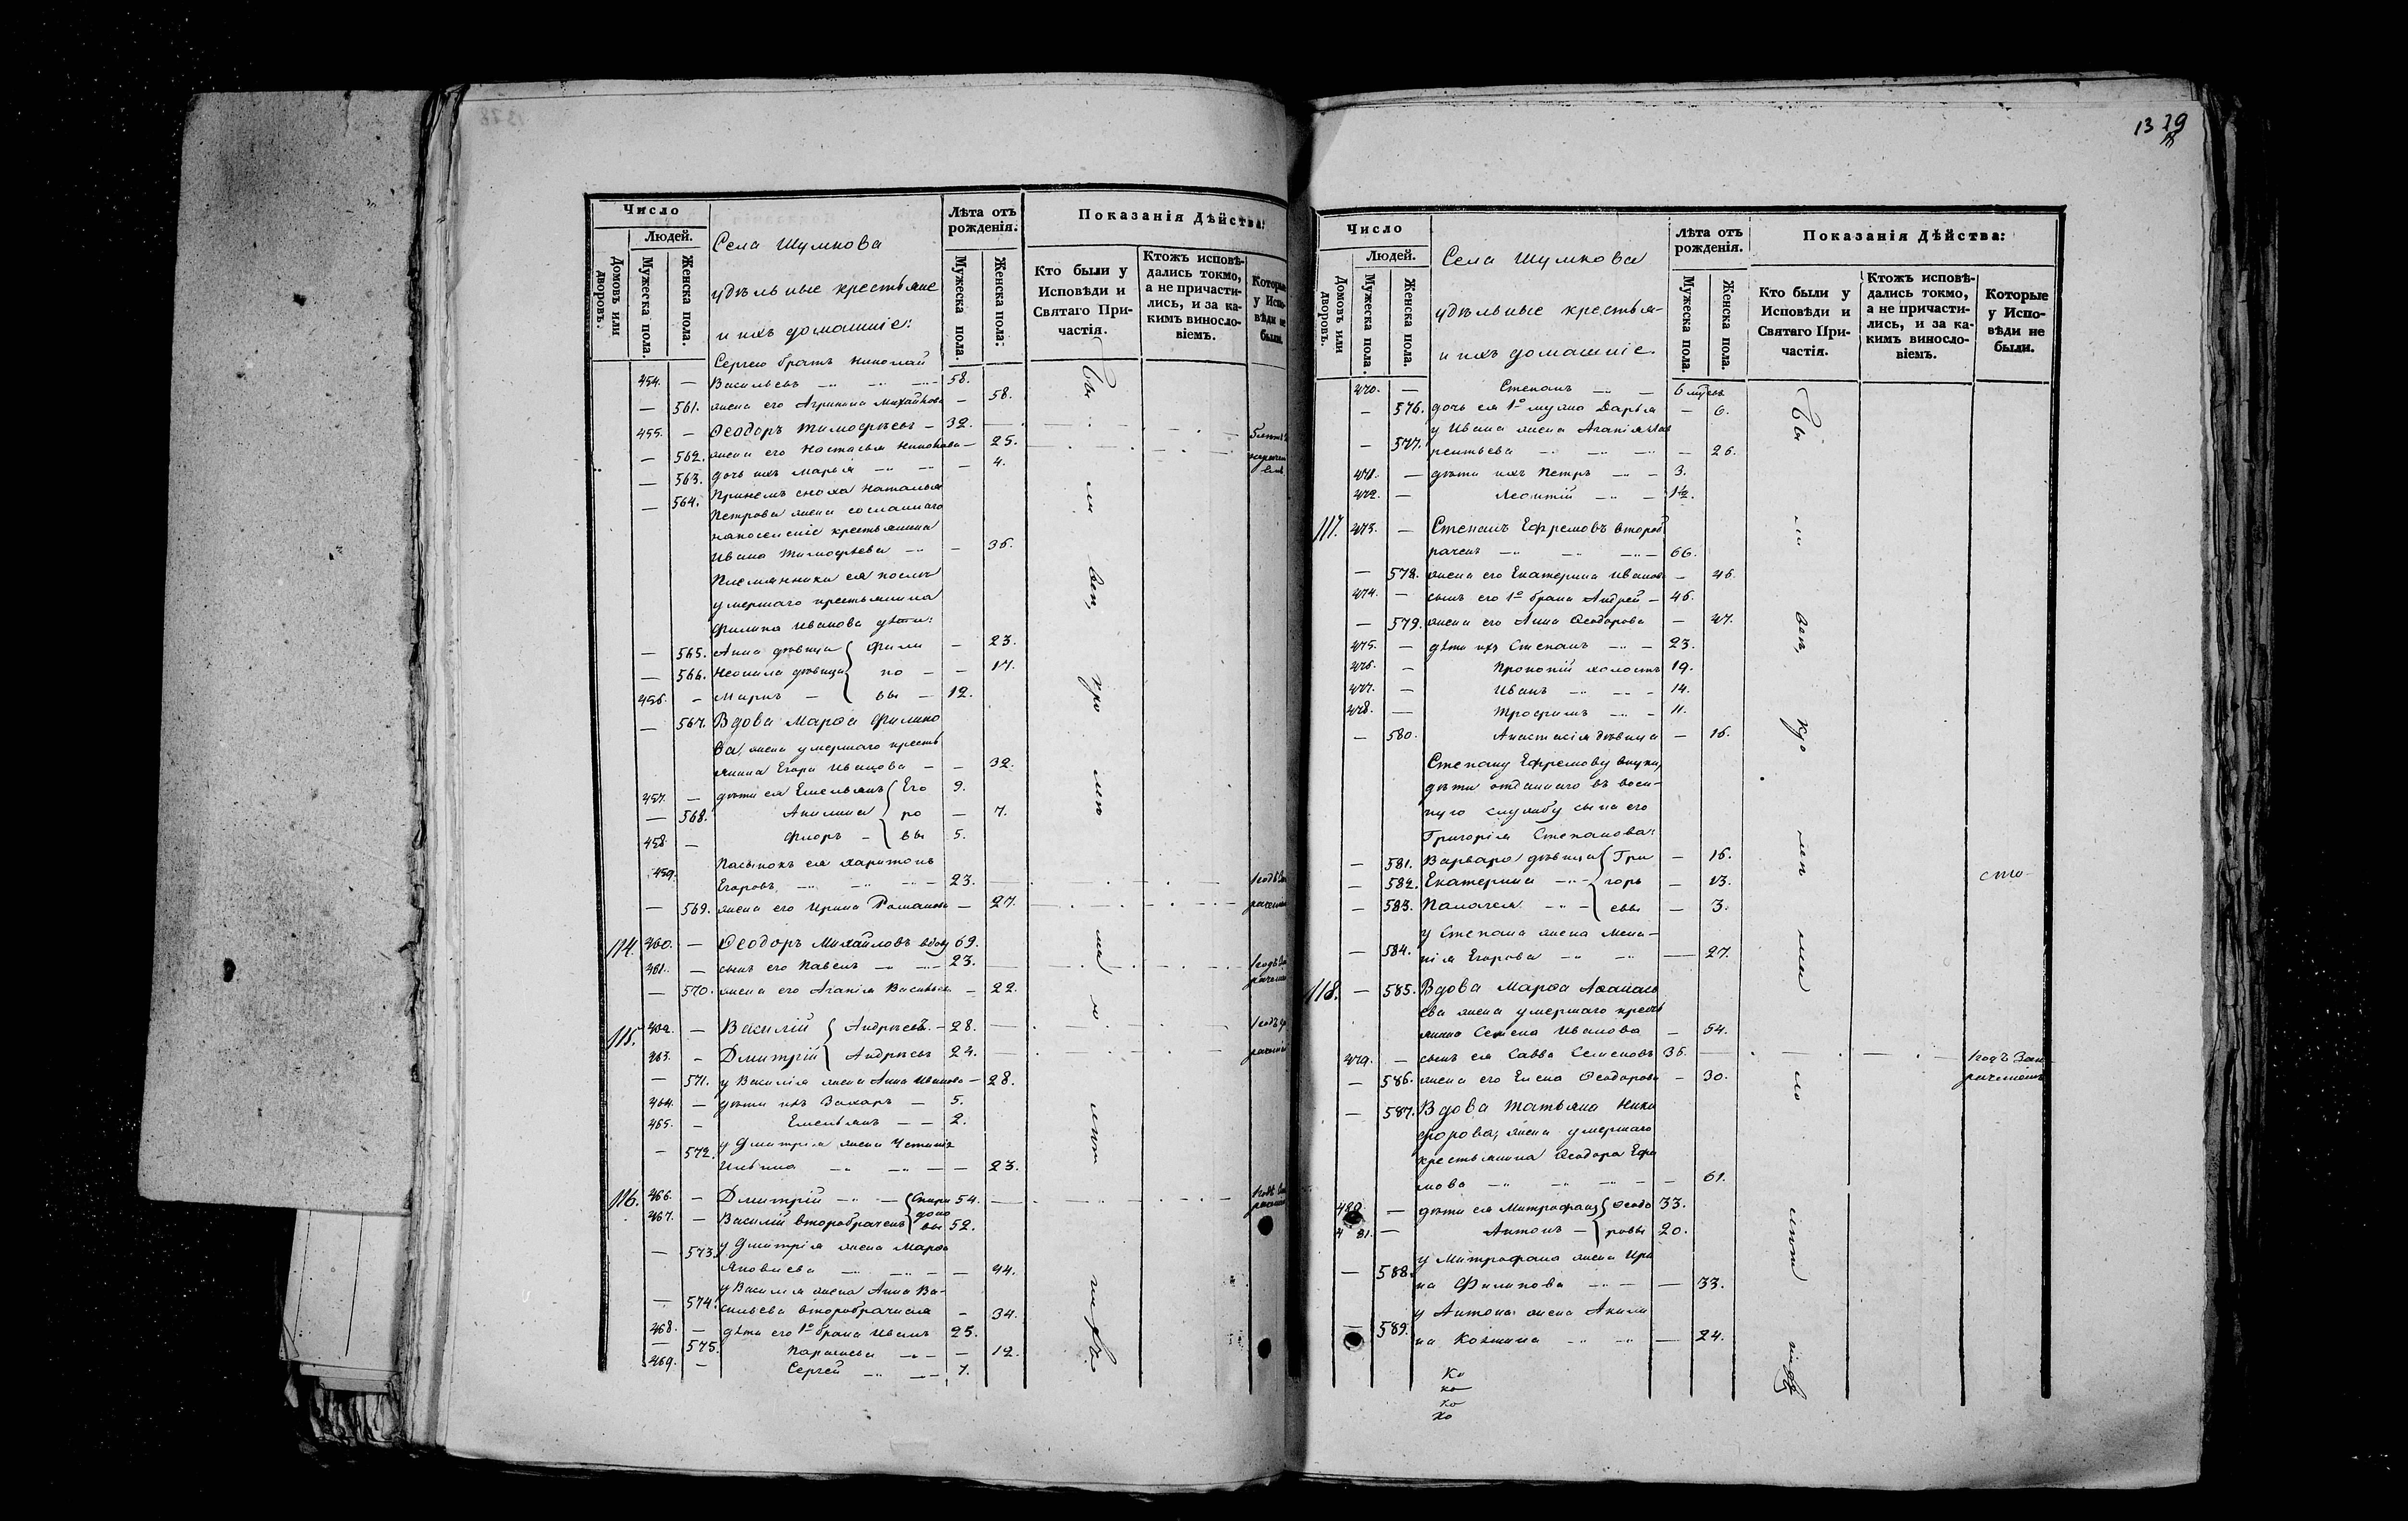 Число
Людей.
Домовъ или дворовъ.
Мужеска пола.
Женска пола.
Села Шумкова
удѣльные крестьяне
и ихъ домашніе:
Лѣта отъ рожденія.
Мужеска пола.
Женска пола:
Показанія Дѣйства:
Кто были у Исповѣди и Святаго Причастія.
Ктожъ исповѣдались токмо, а не причастились, и за какимъ винословіемъ.
Которые у Исповѣди не были.
Сергею братъ Николай
454. — Васильевъ 58.
— 561. жена его Агрипина Михайлова — 58.
455. — Ѳеодоръ Тимофѣевъ — 32.
— 562. жена его Настасья — 25.
— 563. дочь ихъ Марья — 4.
— 564. Принемъ сноха Наталья
Петрова жена сосланнаго
на поселеніе крестьянина
Ивана Тимофѣева — 36.
Племянники ея послѣ
умершаго крестьянина
Филипа Иванова дѣти:
— 565. Анна дѣвица { Фили — 23.
— 566. Неонила дѣвица по — 17.
456. — Маркъ — вы — 12.
— 567. Вдова Марѳа Филипо
ва жена умершаго кресть
янина Егора Иванова — 32.
457. — дѣти ея Емельянъ { Его 9.
— 568. Акилина ро — 7.
458. — Флоръ — вы 5.
459. Пасынокъ ея Харитонъ
Егоровъ 23.
— 569. жена его Ирина Романова — 27.
114. 460. — Ѳеодоръ Михайловъ вдов 69.
461. — сынъ его Павелъ 23.
— 570. жена его Агапія Васильева — 22.
115. 462. — Василій { Андрѣевъ — 28.
463. — Дмитрій Андрѣевъ 24.
— 571. у Василія жена Анна Иванова — 28.
464. — дѣти ихъ Захаръ — 5.
465. — Емельянъ — 2.
— 572. у Дмитрія жена Устинія
Ильина — 23.
116. 466. — Дмитрій — { Спири 54.
467. — Василій второбраченъ доно вы 52.
— 573. у Дмитрія жена Марѳа
Яковлева — 44.
— 574. у Василія жена Анна Ва-
сильева второбрачная — 34.
468. — дѣти его 1º брака Иванъ 25.
— 575. Парасковья — 12.
469. — Сергей 7.
1329
Число
Людей.
Домовъ или дворовъ.
Мужеска пола.
Женска пола.
Села Шумкова
удѣльные крестья-
и ихъ домашніе.
Лѣта отъ рожденія.
Мужеска пола.
Женска пола.
Показанія Дѣйства:
Кто были у Исповѣди и Святаго Причастія.
Ктожъ исповѣдались токмо, а не причастились, и за какимъ винословіемъ.
Которые у Исповѣди не были.
470. — Степанъ 6
— 576. дочь ея 1º мужа Дарья — 6.
— 577. у Ивана жена Агапія Лав
рентьева — 26.
471. — дѣти ихъ Петръ — 3.
472. — Леонтій — 1½.
117. 473. — Степанъ Ефремовъ второб
раченъ — 66.
— 578. жена его Екатерина Иванова — 46.
474. — сынъ его 1º брака Андрей — 46.
— 579. жена его Анна Ѳеодорова — 47.
475. — дѣти ихъ Степанъ — 23.
476. — Прокопій холостъ 19.
477. — Иванъ — 14.
478. — Трофимъ — 11.
— 580. Анастасія дѣвица — 16.
Степану Ефремову внуки,
дѣти отданнаго въ воен-
ную службу сына его
Григорія Степанова:
— 581. Варвара дѣвица { Гри — 16.
— 582. Екатерина — горь — 13.
— 583. Палагея — евы — 3.
— 584. у Степана жена Мела-
нія Егорова — 27.
118. — 585. Вдова Марѳа Аѳанась
ева жена умершаго кресть
янина Семена Иванова — 54.
479. — сынъ ея Савва Семеновъ 36.
— 586. жена его Елена Ѳеодорова — 30.
— 587. Вдова Татьяна Ники
форова, жена умершаго
крестьянина Ѳеодора Ефи
мова — 61.
480. — дѣти ея Митрофанъ { Ѳеодо 33.
481. — Антонъ — ровы 20.
— 588. у Митрофана жена Ири
на Филипова — 33.
— 589. у Антона жена Акили
на Козмина — 24.